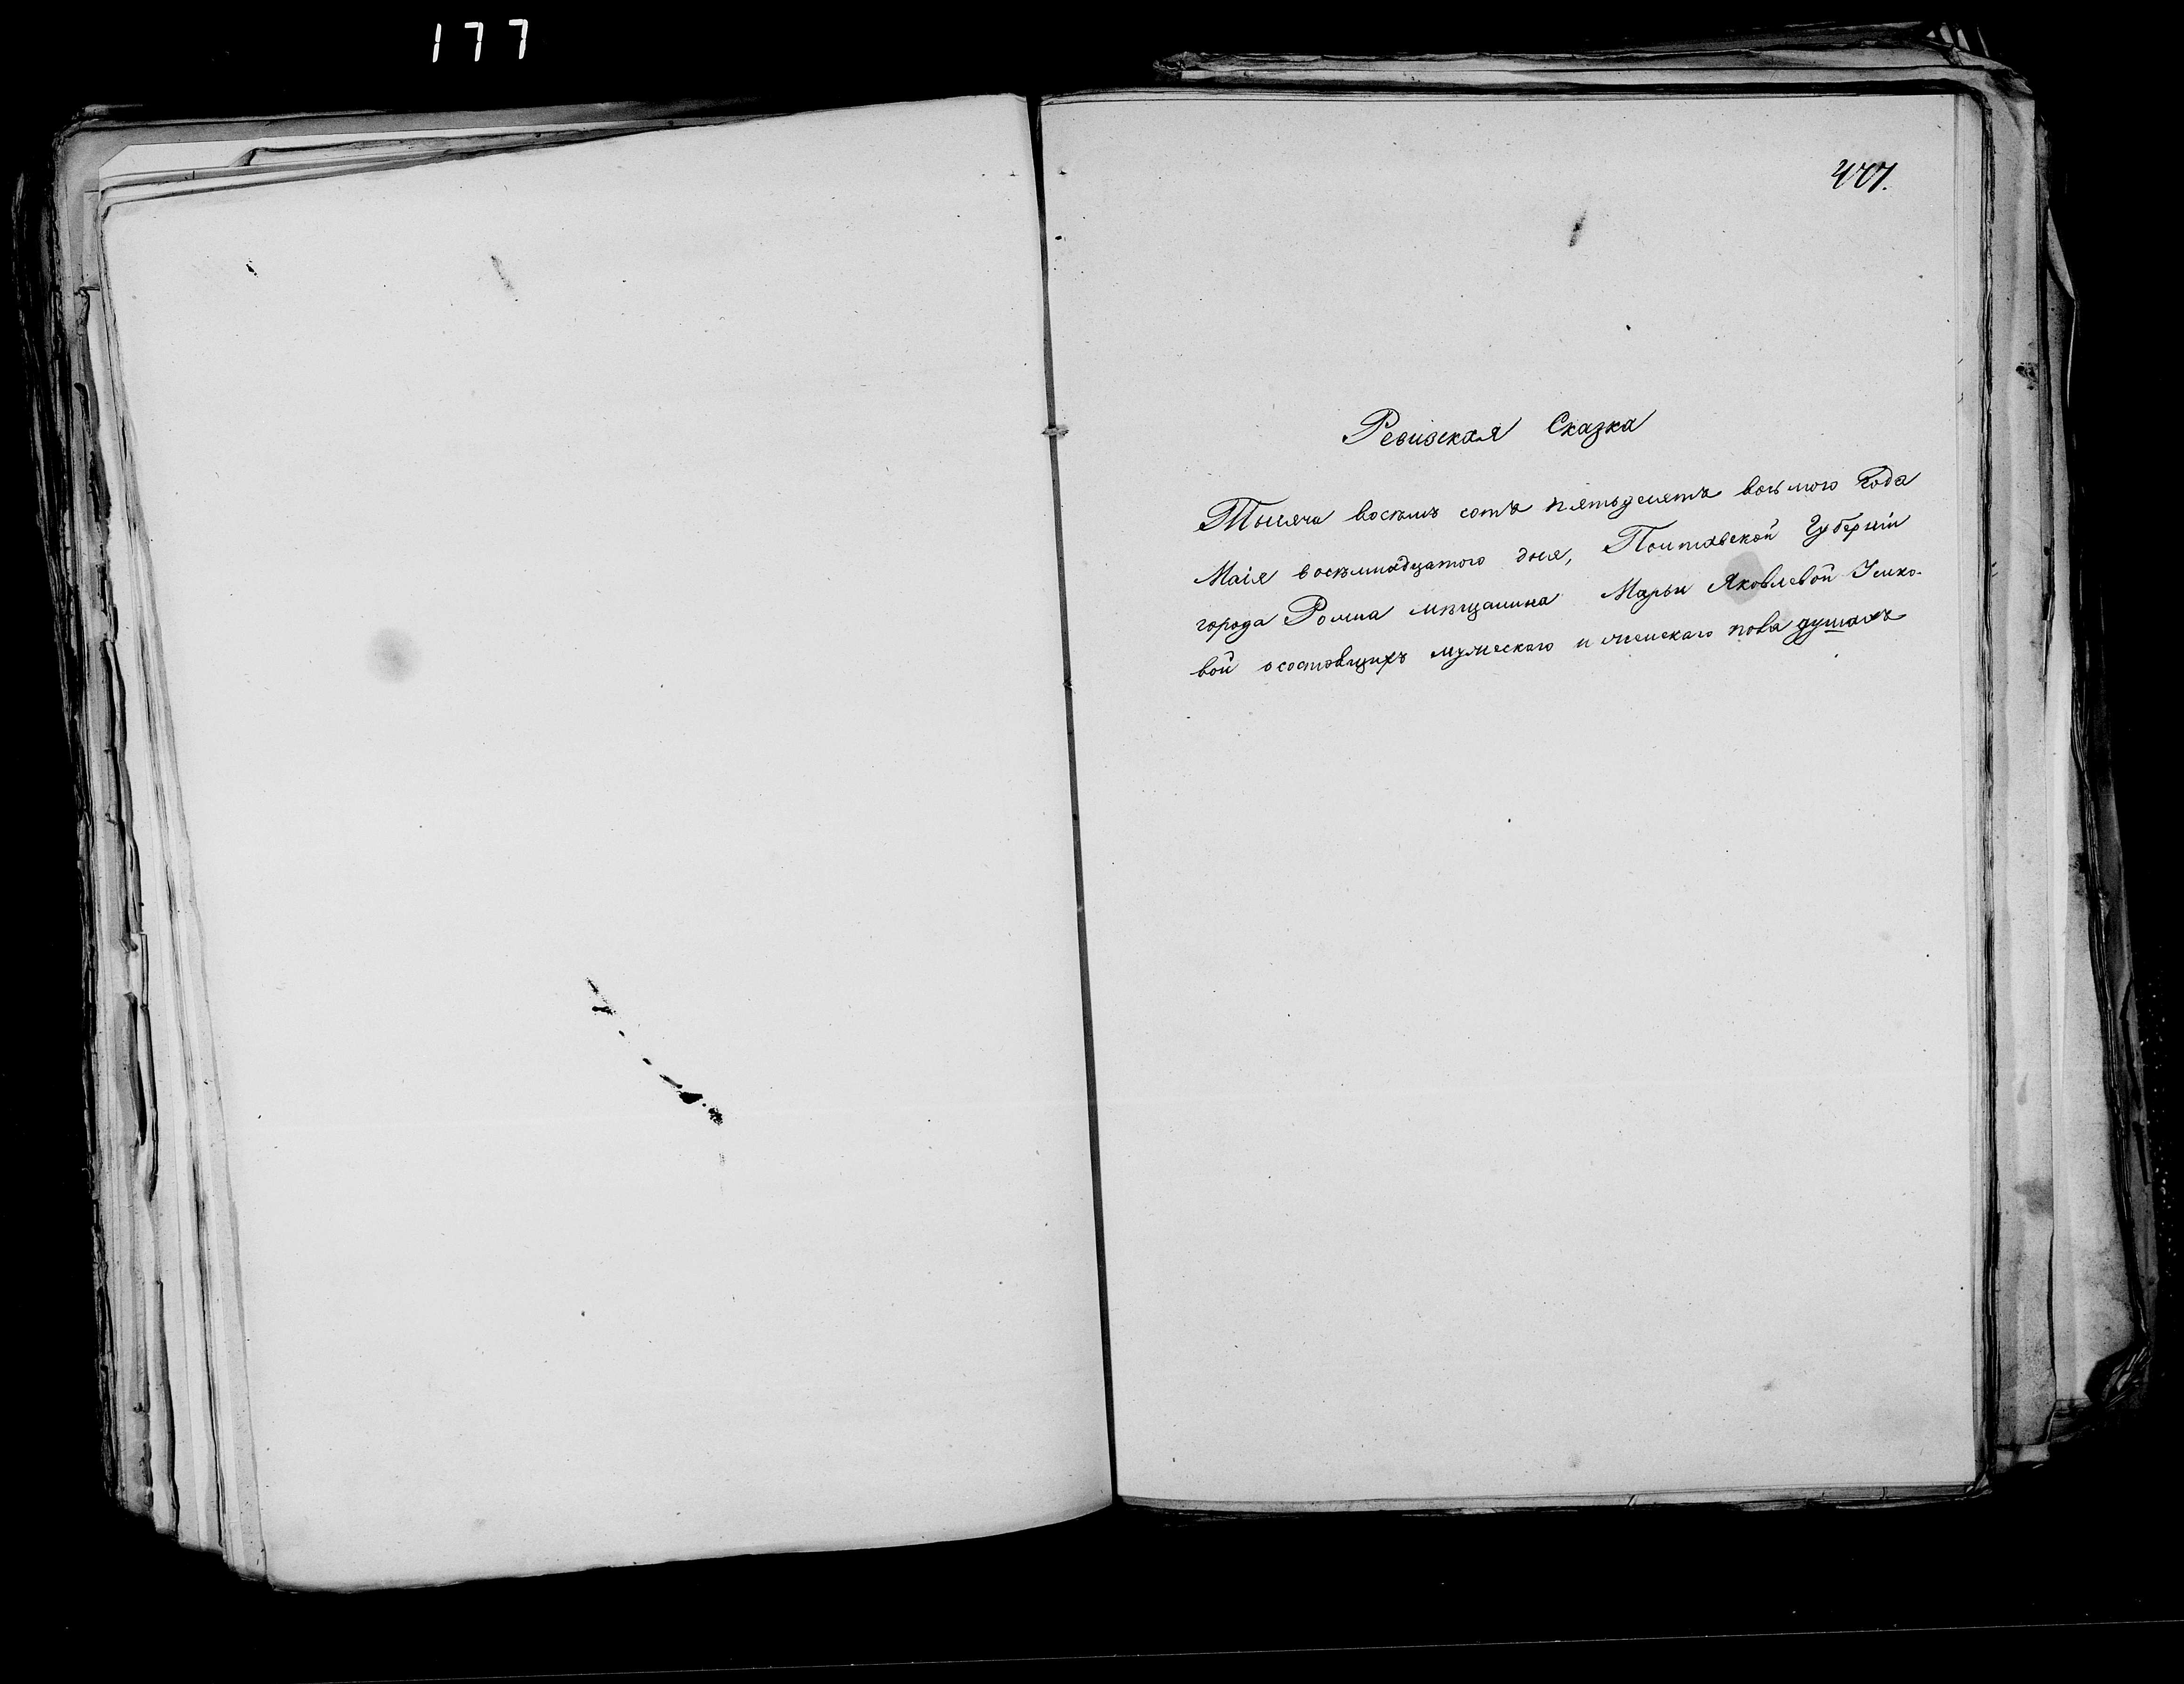 177
477.
Ревизская Сказка
Тысяча восемь сотъ пятьдесятъ восьмого Года
Маія восемнадцатого дня, Полтавской Губерніи
города Ромна мѣщанина Марьи Яковлевой
вой о состовщихъ мужескаго и женскаго пола душахъ